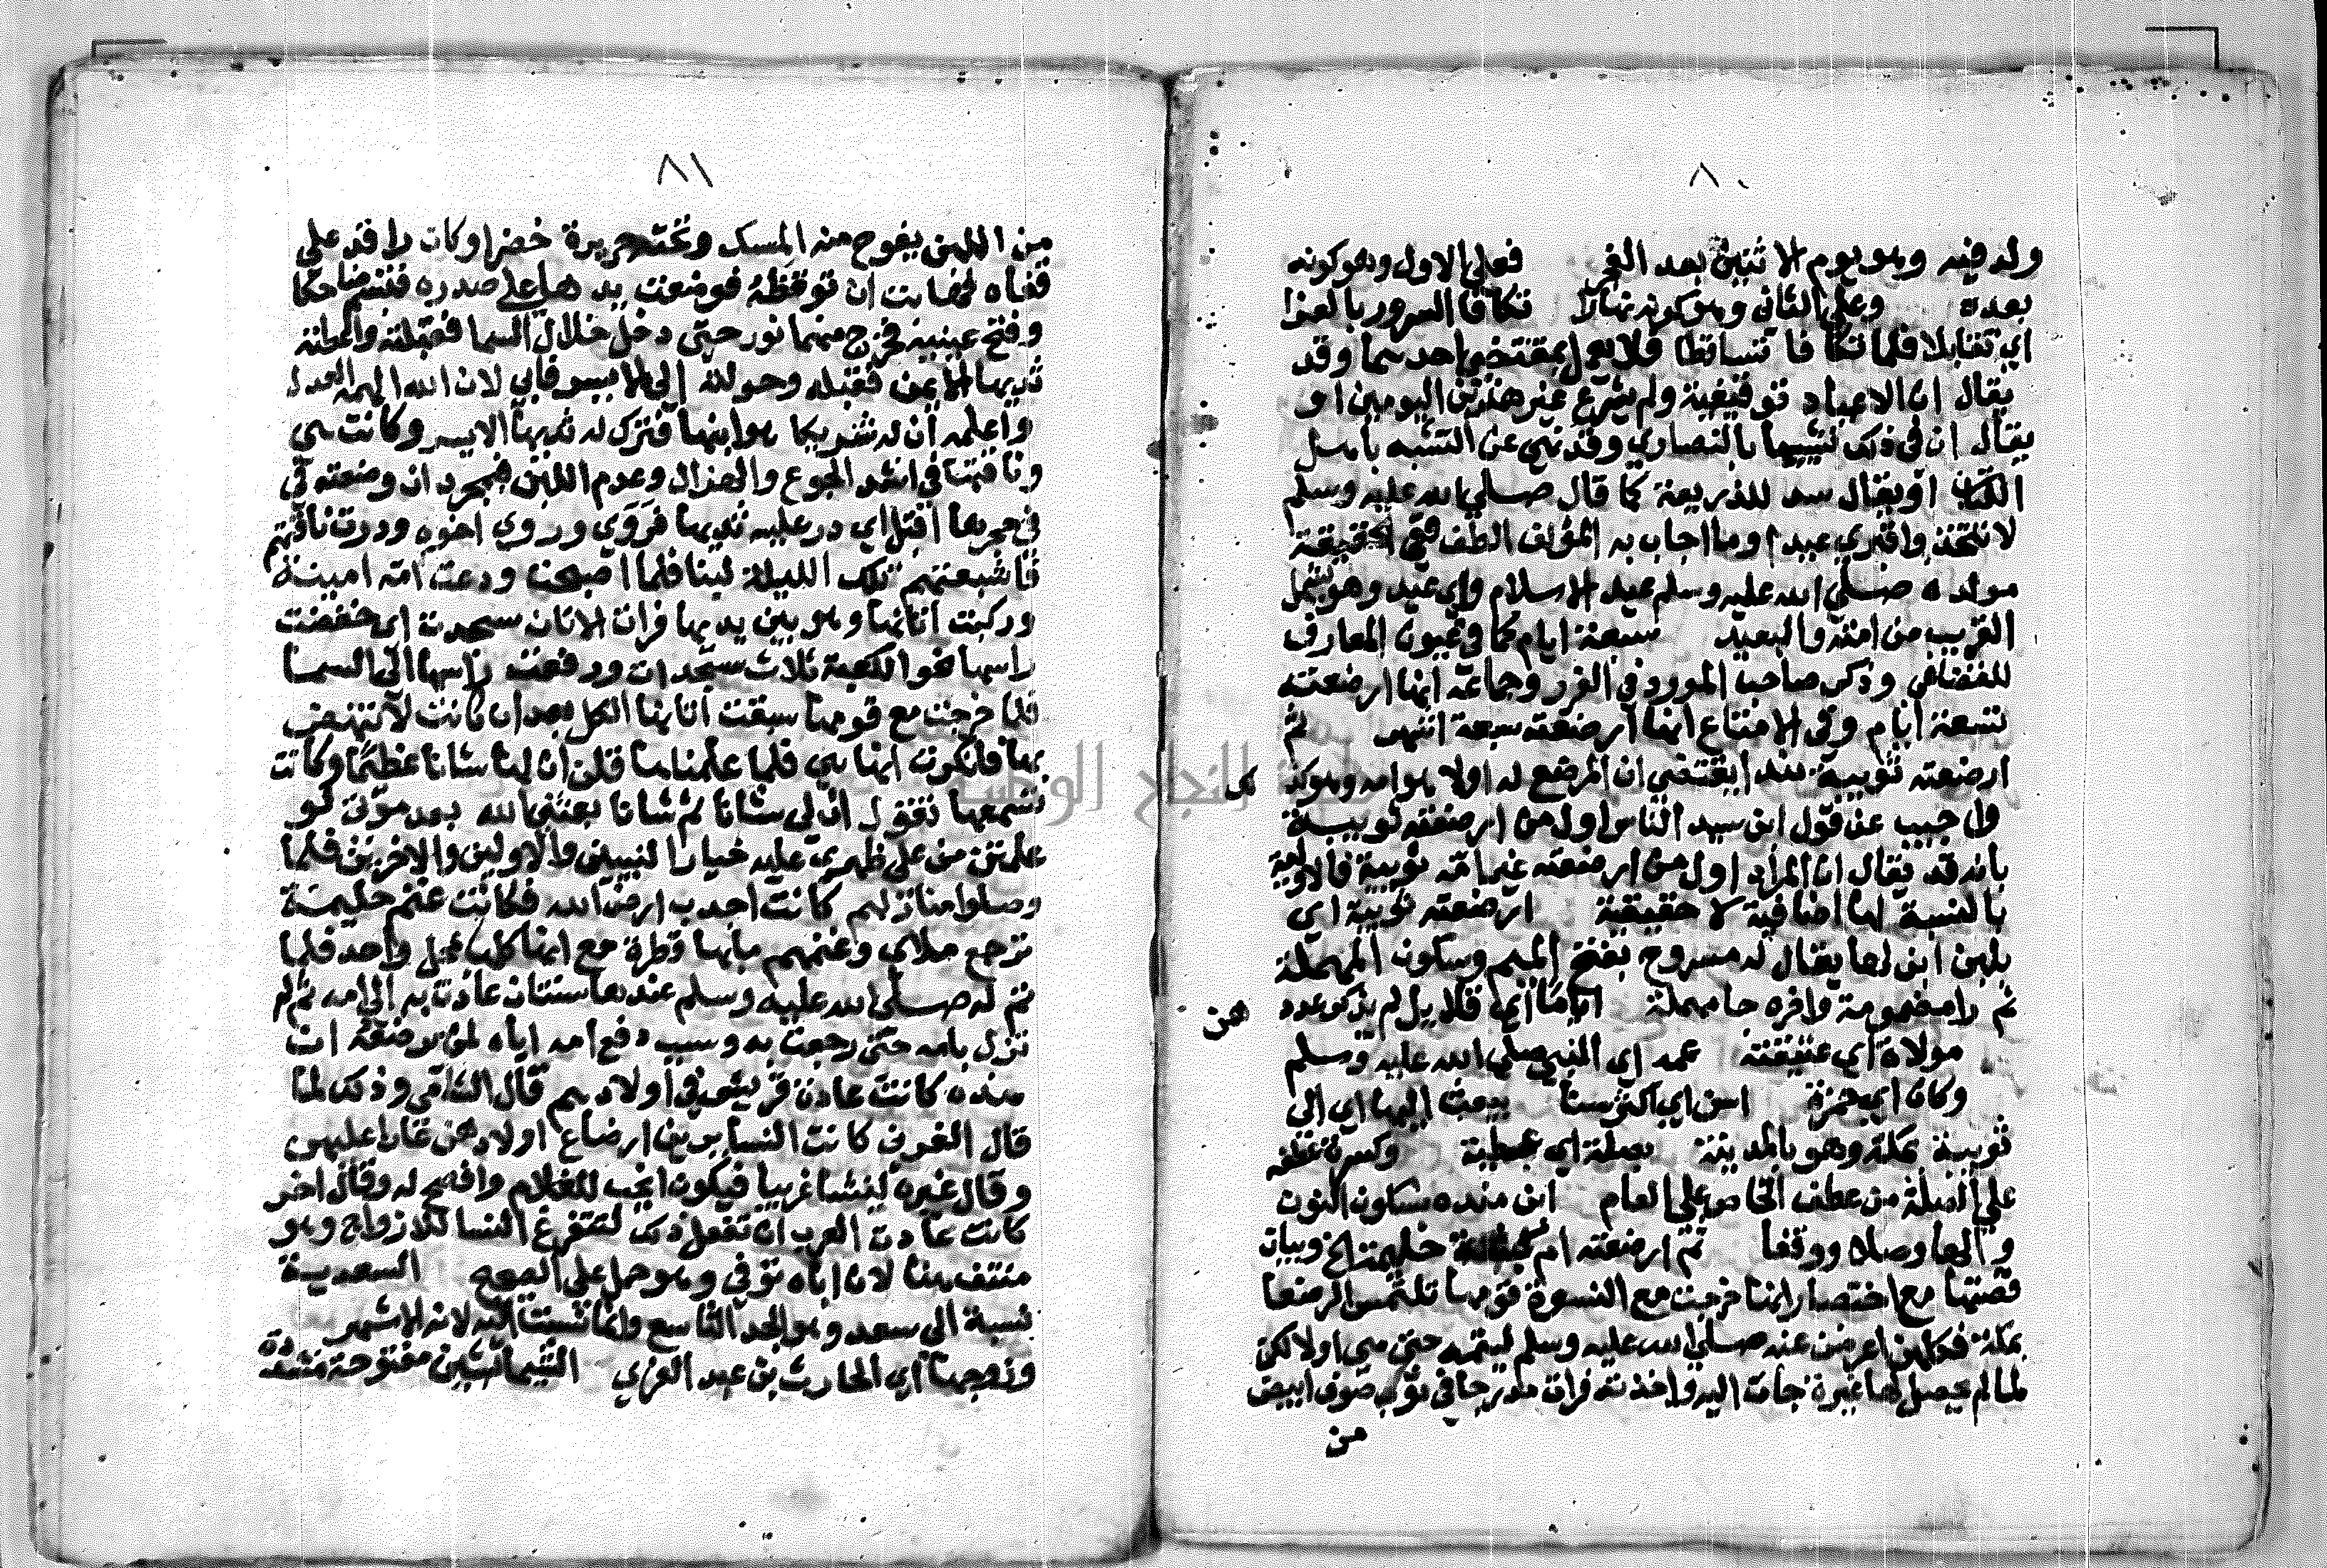 ٨٠
ولد فيه وهو يوم الاثنين بعد الفجر فعلي الاول وهو كونه
بعده وعلي الثاني وهو كونه نهارا تكافا السرور بالعزا
اي تقابلا فلما تكا فا تتساقطا فلا يعمل بمقتضي احدهما وقد
يقال ان الاعياد توقيفية ولم يشرع غير هذين اليومين او
يقال ان في ذلك تشبيها بالنصاري وقد نهي عن التشبه باهل
الكتاب او يقال سد للذريعة كما قال صلي الله عليه وسلم
لا تتخذوا قبري عيدا وما اجاب به المؤلف الطف ففي الحقيقة
مولده صلي الله عليه وسلم عيد الاسلام واي عيد وهو يشمل
القريب من امته والبعيد سبعة ايام كما في عيون المعارف
للقضاعي وذكر صاحب المورد في الغرر وجماعة انها ارضعته
تسعة ايام وفي الامتاع انها ارضعته سبعة انتهي ثم
ارضعته ثويبة هذا يقتضي ان المرضع له اولا هو امه وهو كذ لك
واجيب عن قول ابن سيد الناس اول من ارضعته ثويبة
بانه قد يقال ان المراد اول من ارضعته غير امه ثويبة فالاولية
بالنسبة لها اضافية لا حقيقية ارضعته ثويبة اي
بلبن ابن لها يقال له مسروح بفتح الميم وسكون المهملة
ثم را مضمومة واخره حا مهملة اياما اي قلايل لم يذكو عدد هن
مولاة اي عتيقته عمه اي النبي صلي الله عليه وسلم
وكان اي حمزة اسن اي اكثر سنا يبعث اليها اي الي
ثويبة بمكة وهو بالمدينة بصلة اي عطية وكسوة عطفه
علي الصلة من عطف الخاص علي العام ابن منده بسكون النون
والها وصلا ووقفا ثم ارضعته ام كبشة حليمة الخ وبيان
قصتها مع اختصار انها خرجت مع النسوة قومها تلتمس الرضعا
بمكة فكلهن اعرضن عنه صلي الله عليه وسلم ليتمه حتي هي اولا لكن
لما لم يحصل لها غيره جات اليه واخذته فرات مدرجا في ثوب صوف ابيض
من
٨١
من اللبن يفوح منه المسك وتحته حريرة خضرا وكان راقد علي
قفاه فخافت ان توقظه فوضعت يدها علي صدره فتبسم ضاحكا
وفتح عينيه فخرج منهما نور حتي دخل خلال السما فقبلته واعطته
ثديها الايمن فقبله وحولته الي الايسر فابي لان الله الهمه العدل
واعلمه ان له شريكا هو ابنها فترك له ثديها الايسر وكانت هي
وناقتها في اشد الجوع والهزال وعدم اللبن فبمجرد ان وضعته في
في حجرها اقبل اي در عليه ثديها فروي وروي اخوه ودرت ناقتهم
فاشبعتهم تلك الليلة لبنا فلما اصبحت ودعت امه امينة
وركبت اتانها وهو بين يديها فرات الاتان سجدت اي خفضت
راسها نحو الكعبة ثلاث سجدات ورفعت راسها الي السما
فلما خرجت مع قومها سبقت اتانها الكل بعد ان كانت لا تنهض
بها فانكرن انها هي فلما علمنا ها قلن ان لها شانا عظيما وكانت
تسمعها تقول ان لي شانا ثم شانا بعثني الله بعد موتي لو
علمتن من علي ظهري عليه خيار النبيين والاولين والاخرين فلما
وصلوا منازلهم كانت اجدب ارض الله فكانت غنم حليمة
ترجع ملاي وغنمهم ما بها قطرة مع انها كلها بمحل واحد فلما
تم له صلي الله عليه وسلم عندها سنتان عادت به الي امه ثم لم
تزل بامه حتي رجعت به وسبب دفع امه اياه لمن ترضعه ان
هذه كانت عادة قريش في اولادهم قال الشامي وذلك لما
قال العزفي كانت النسا يرين ارضاع اولادهن عارا عليهن
وقال غيره لينشا غريبا فيكون انجب للغلام وافصح له وقال اخر
كانت عادت العرب ان تفعل ذلك لتتفرغ النسا للازواج وهو
منتف هنا لان اباه توفي وهو حمل علي الصحيح السعدية
نسبة الي سعد وهو الجد التاسع وانما نسبت اليه لانه الاشهر
وزوجها اي الحارث بن عبد العزي الشيما بشين مفتوحة مشددة